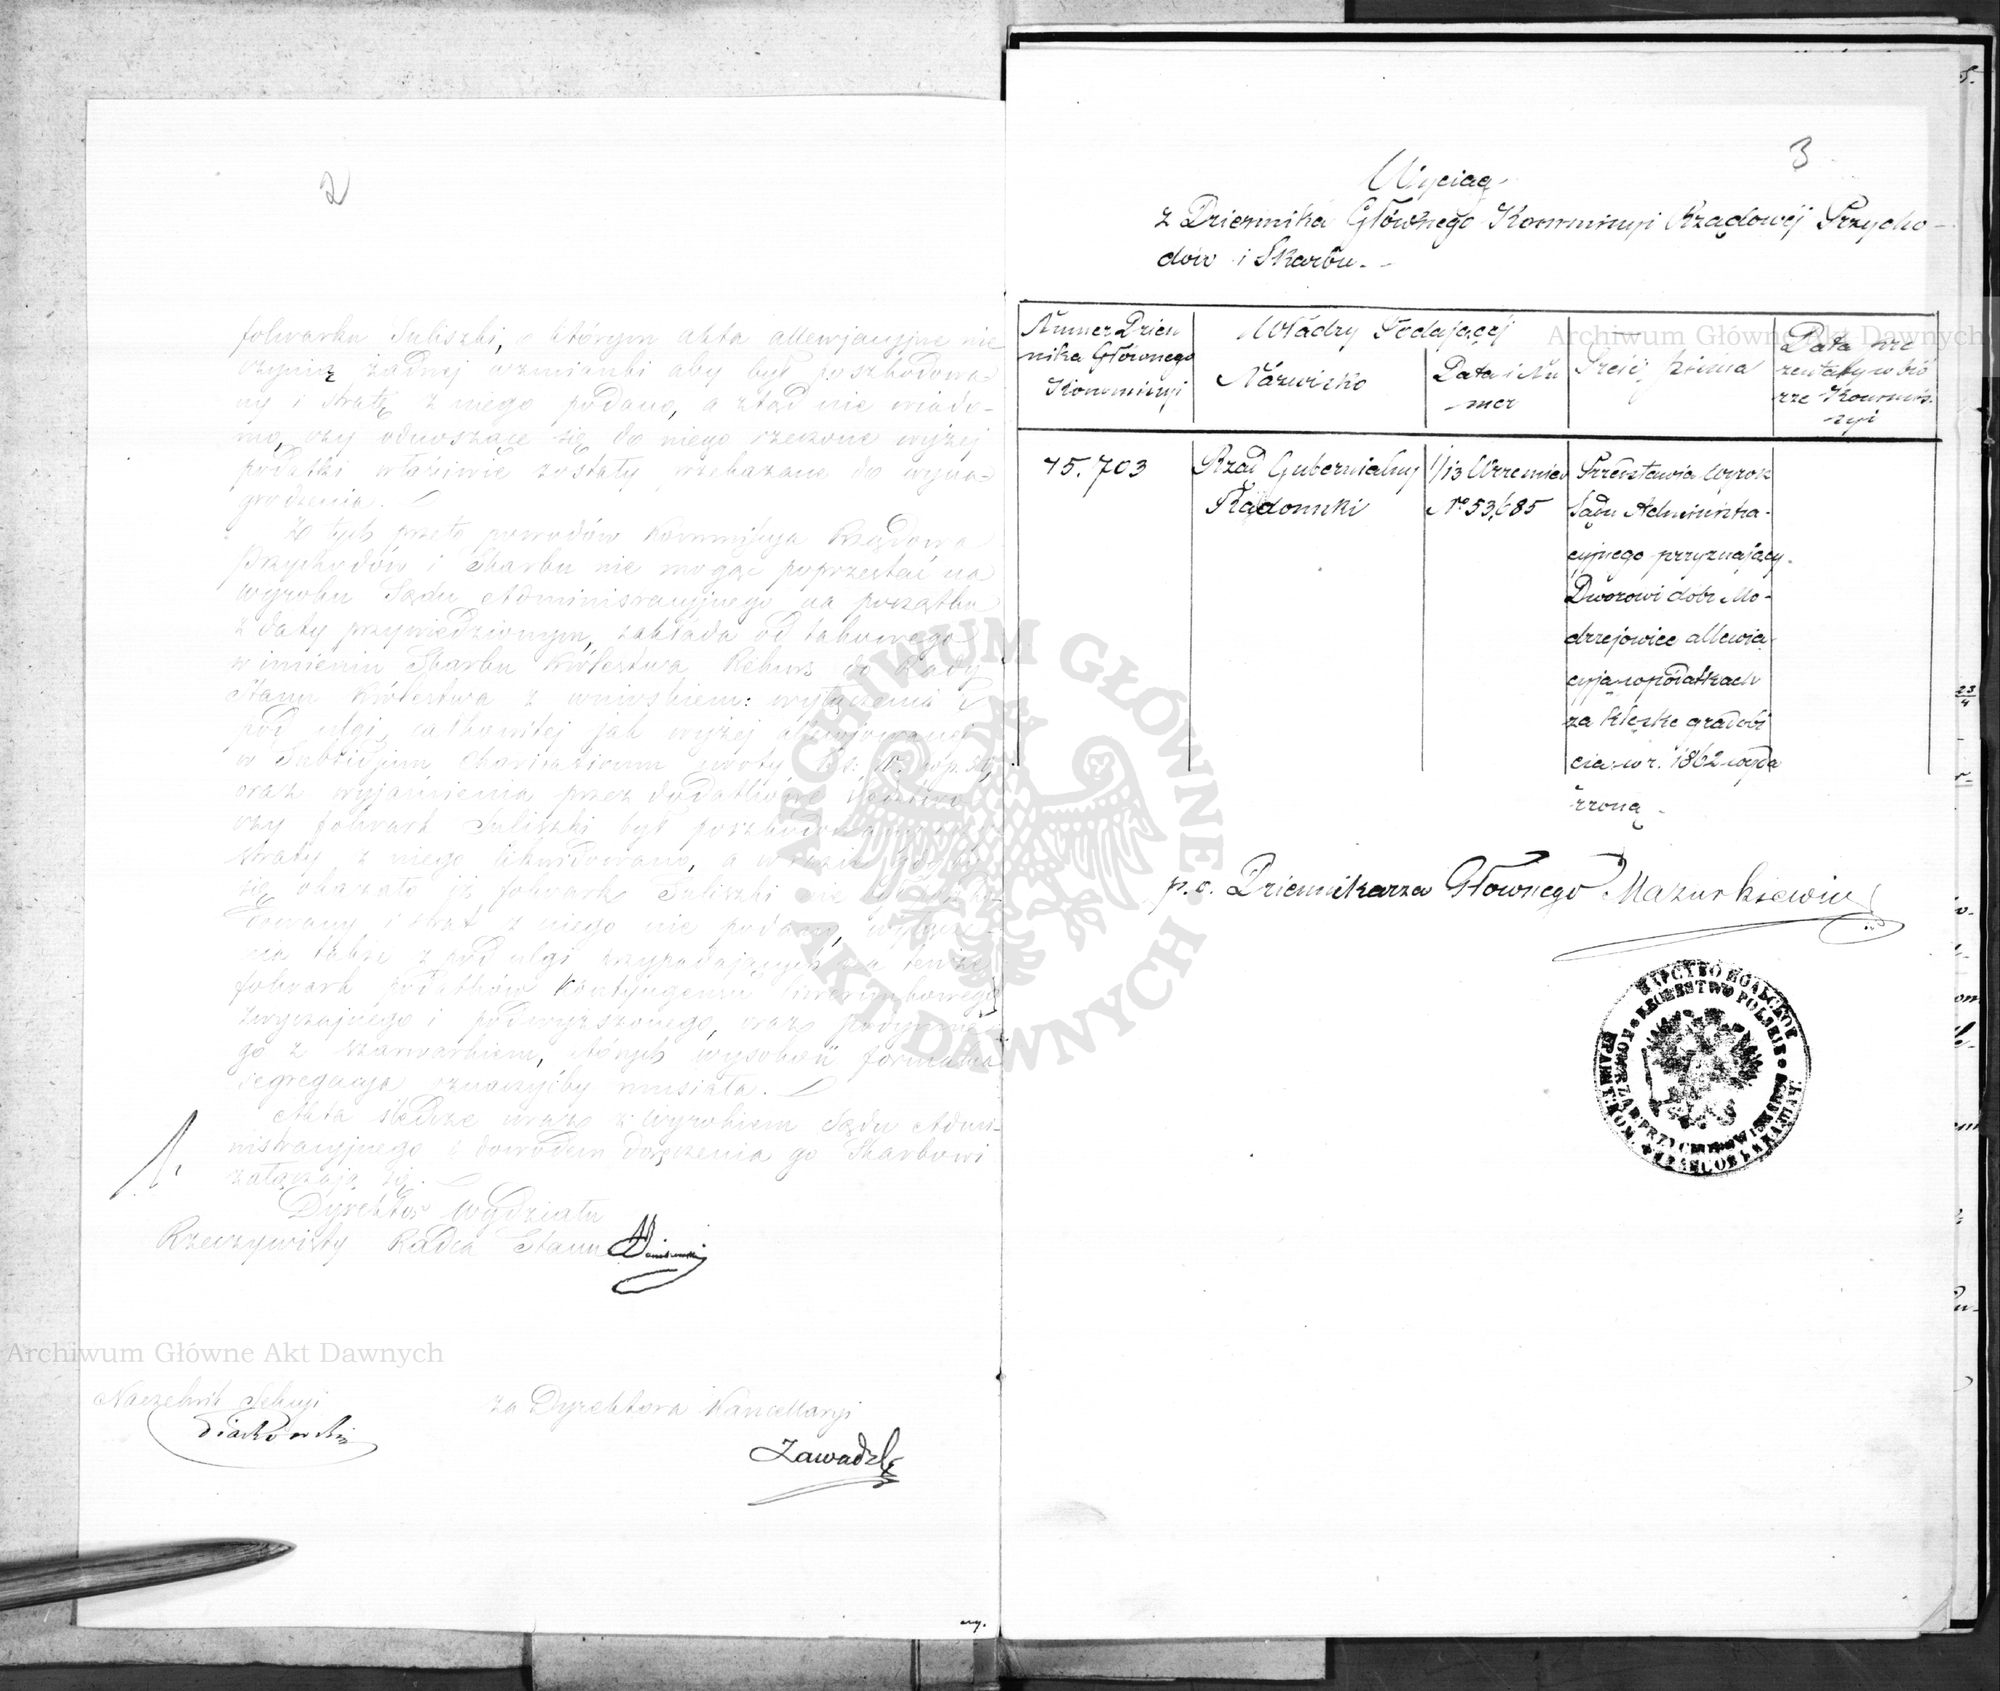 2
folwarku Suliszki, o którym akta allewjacyjne nie
czynią żadnej wzmianki aby był poszkodowa-
ny i stratę z niego podano, a ztąd nie wiado-
mo, czy odnoszące się do niego rzeczone wyżej
podatki właściwie zostały wskazane do wyna-
grodzenia.
Z tych przeto powodów Kommissya Rządowa
Przychodów i Skarbu nie mogąc poprzestać na
wyroku Sądu Administracyjnego na początku
z daty przywiedzionym, zakłada od takowego
w imieniu Skarbu Królestwa Rekurs do Rady
Stanu Królestwa z wnioskiem: wyłączenia z
pod ulgi całkowitej jak wyżej allewjowanej
w Subsidjum Charitativum kwoty
oraz wyjaśnienia przez dodatkowe
czy folwark Suliszki był poszkodowany czy
straty z niego likwidowano, a w razie gdyby
się okazało iż folwark Suliszki nie był poszko-
dowany i strat z niego nie podano, wyłącze-
nia także z pod ulgi przypadających na tenże
folwark podatków Kontyngensu liwerunkowego
zwyczajnego i podwyższonego, oraz podymne-
go z szarwarkiem, których wysokość formalna
segregacja oznaczyćby musiała.
Akta śledcze wraz z wyrokiem Sądu Admi-
nistracyjnego i dowodem doręczenia go Skarbowi
załączają się.
Dyrektor Wydziału
Rzeczywisty Radca Stanu
Archiwum Główne Akt Dawnych
Naczelnik Sekcyi
za Dyrektora Kancellaryi
Piaskowski
Zawadzki
3
Wyciąg
z Dziennika Głównego Kommissyi Rządowéj Przycho-
dów i Skarbu.
Archiwum Główne Akt Dawnych
Numer Dzien
nika Głównego
Kommissyi
Władzy Podającéj
Nazwisko
Data i Nu
mer
Treść pisma
Data pre
zentaty w bió
rze Kommis-
syi
75.703
Rząd Gubernialny
Radomski
1/13 Wrzesnia
No 53,685
Przedstawia wyrok
Sądu Administra-
cyjnego przyznający
Dworowi dóbr Mo-
drzejowice allewia-
cyją w podatkach
za klęskę gradobi
cia w r. 1862 wyda
rzoną
p.o. Dziennikarza Głównego Mazurkiewicz
ARCHIWUM GŁÓWNE · AKT DAWNYCH ·